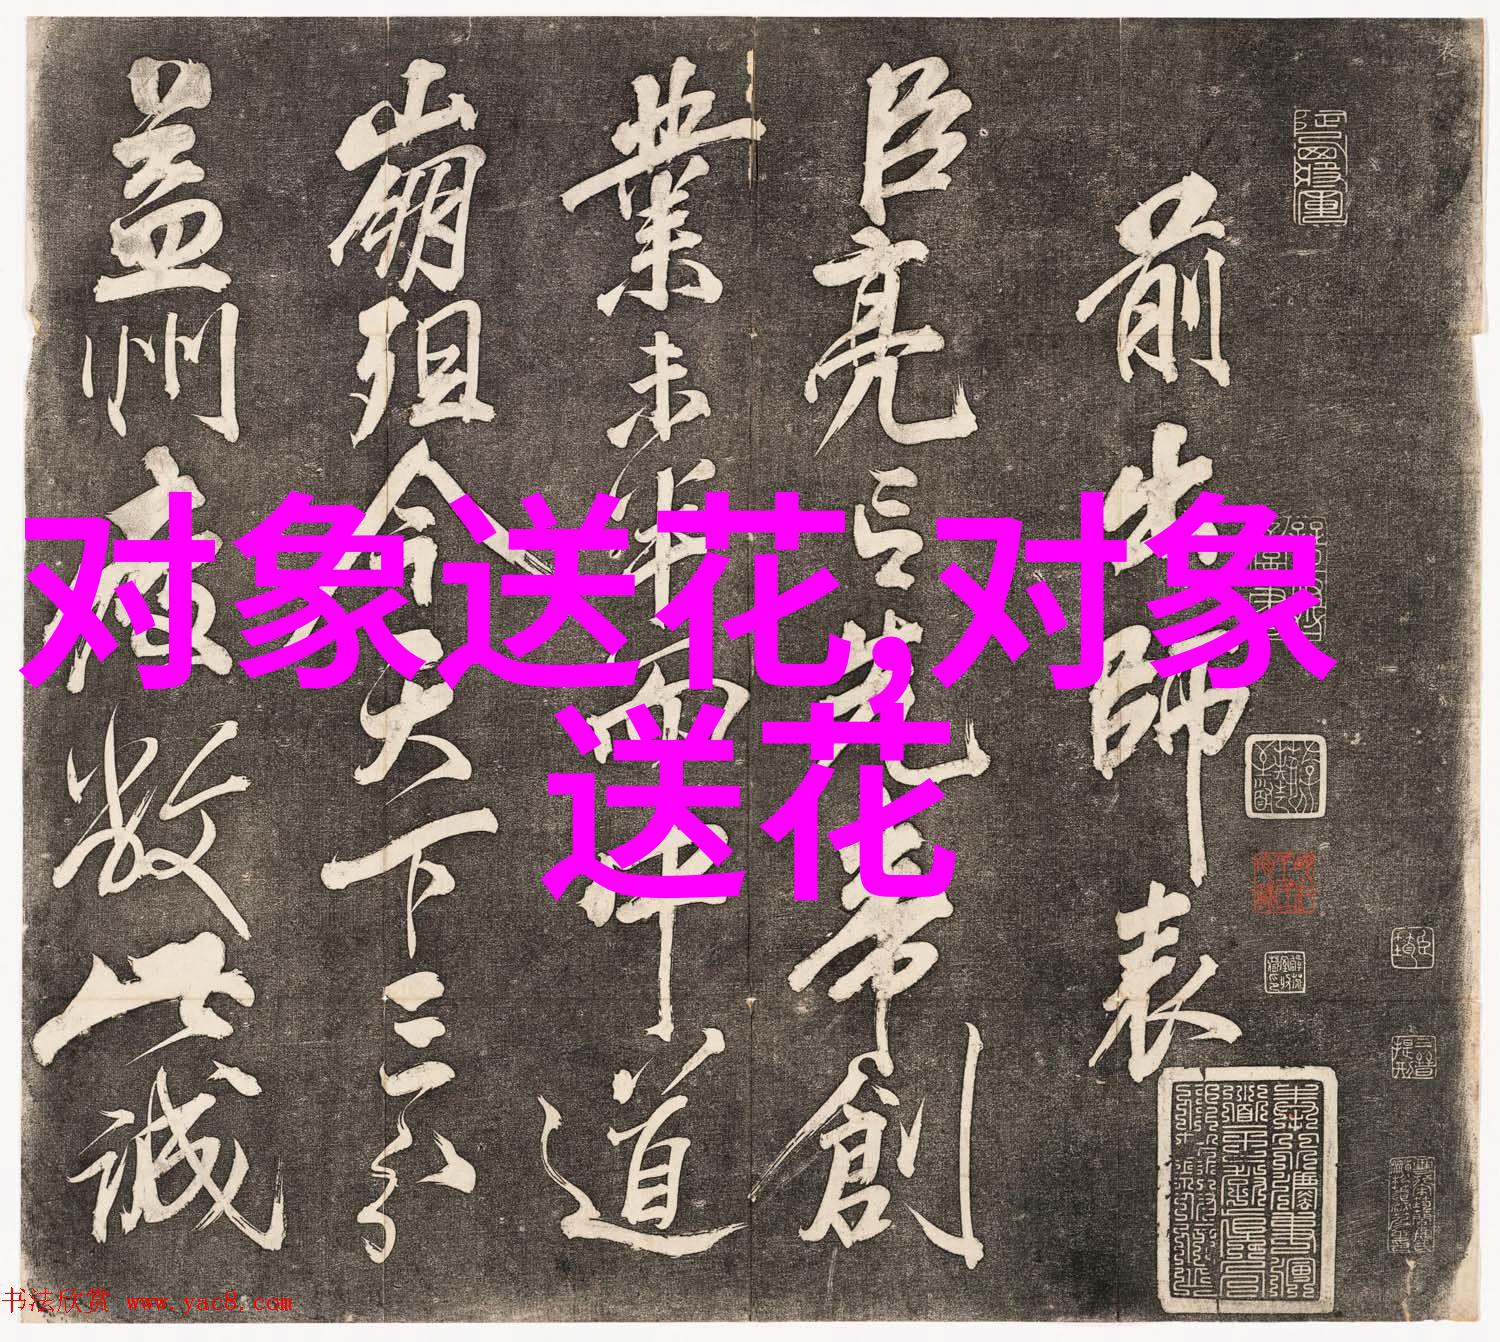 前出師表
臣亮言先帝創
業未半而中道
崩殂今天下三分
益州疲敝此誠
对象送花,对象
送花
书法欣赏 www.yac8.com